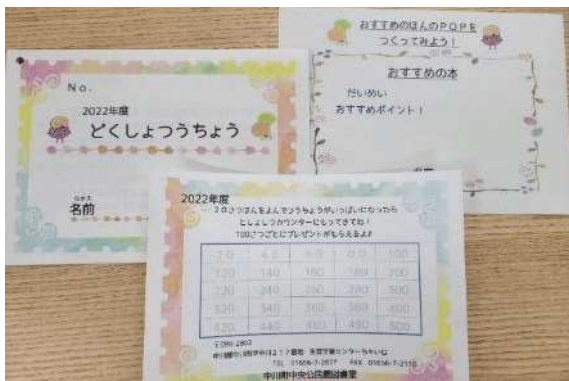 No.
2022年度
どくしょつうちょう
なまえ
名前
おすすめのほんのPOPを
つくってみよう!
おすすめの本
だいめい
おすすめポイント!
2022年度
20さつほんをよんでつうちょうがいっぱいになったら
としょしつカウンターにもってきてね!
100さつごとにプレゼントがもらえるよ♪
20 40 60 80 100
120 140 160 180 200
220 240 260 280 300
320 340 360 380 400
420 440 460 480 500
TEL 01656-7-2877 FAX 01656-7-2110
中川町中央公民館図書室